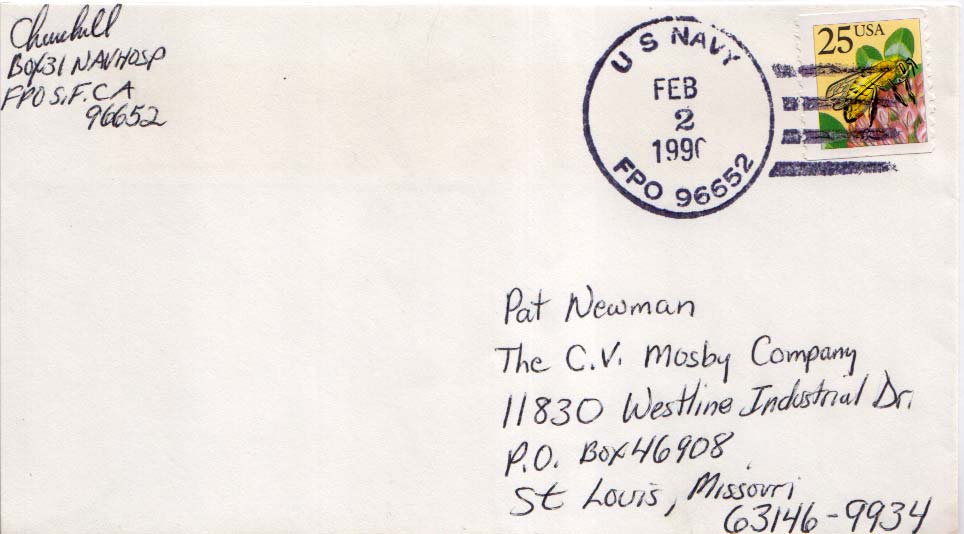 Churchill
BOX 31 NAVHOSP
FPO S.F. CA
96652
U S NAVY
FEB
2
1990
FPO 96652
25 USA
Pat Newman
The C.V. Mosby Company
11830 Westline Industrial Dr.
P.O. Box 46908
St Louis, Missouri
63146-9934